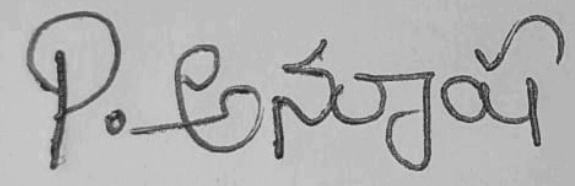 P. అనూష